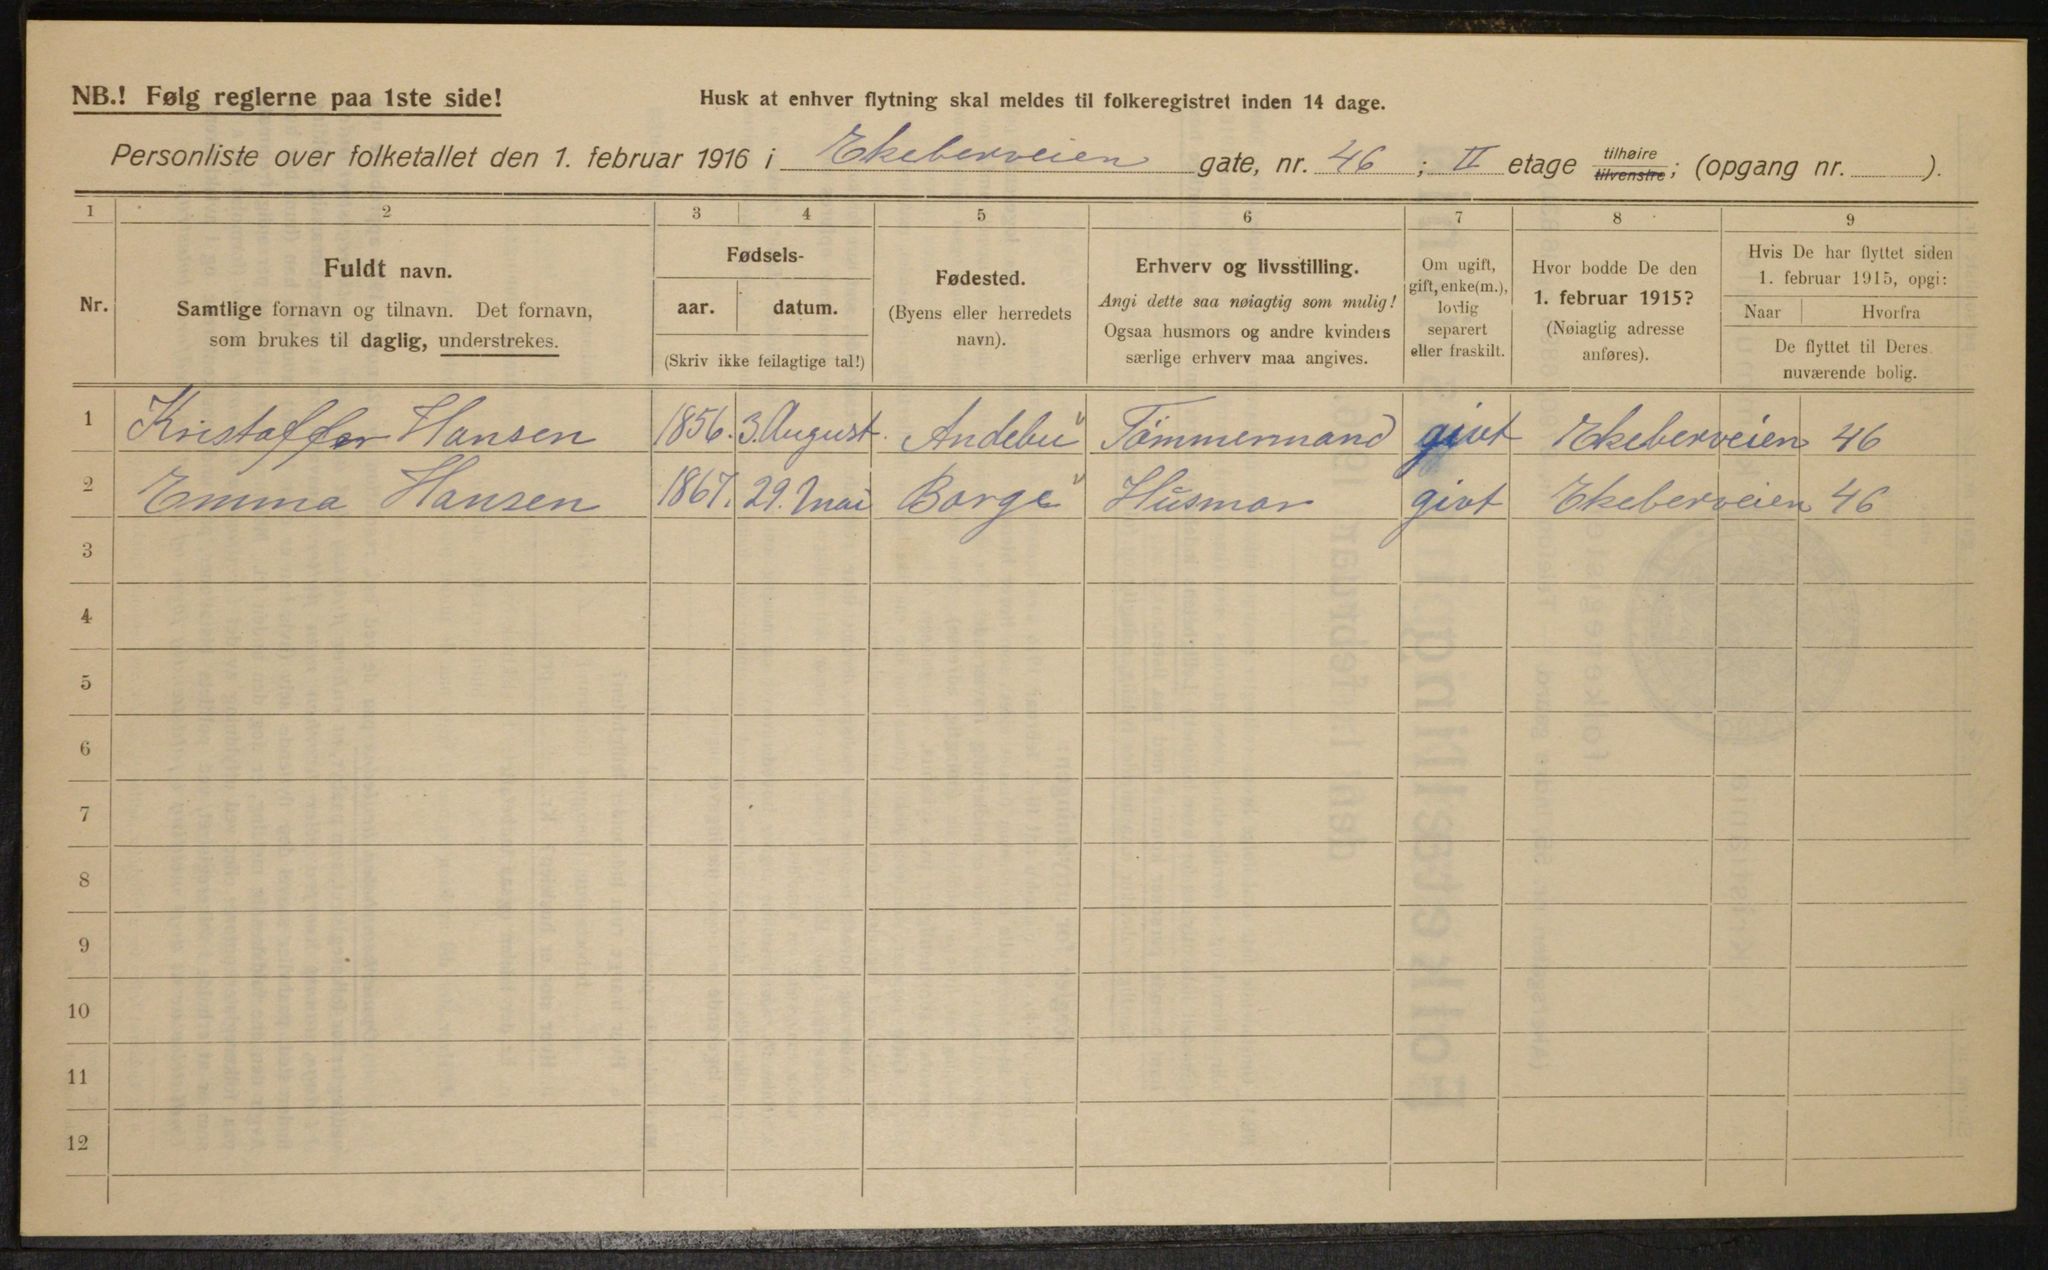 NB.! Følg reglerne paa 1ste side!
Husk at enhver flytning skal meldes til folkeregistret inden 14 dage.
Personliste over folketallet den 1. februar 1916 i Ekeberveien gate, nr. 46 ; II etage tilhøire tilvenstre; (opgang nr. ).
1 2 3 4 5 6 7 8 9
Nr.
Fuldt navn.
Samtlige fornavn og tilnavn. Det fornavn,
som brukes til daglig, understrekes.
Fødsels-
aar. datum.
(Skriv ikke feilagtige tal!)
Fødested.
(Byens eller herredets
navn).
Erhverv og livsstilling.
Angi dette saa nøiagtig som mulig!
Ogsaa husmors og andre kvinders
særlige erhverv maa angives.
Om ugift,
gift, enke(m.),
lovlig
separert
eller fraskilt.
Hvor bodde De den
1. februar 1915?
(Nøiagtig adresse
anføres).
Hvis De har flyttet siden
1. februar 1915, opgi:
Naar Hvorfra
De flyttet til Deres
nuværende bolig.
1 Kristoffer Hansen 1856. 3. August. Andebu Tömmermand givt Ekeberveien 46
2 Emma Hansen 1867. 29. Mai Borge Husmor givt Ekeberveien 46
3
4
5
6
7
8
9
10
11
12